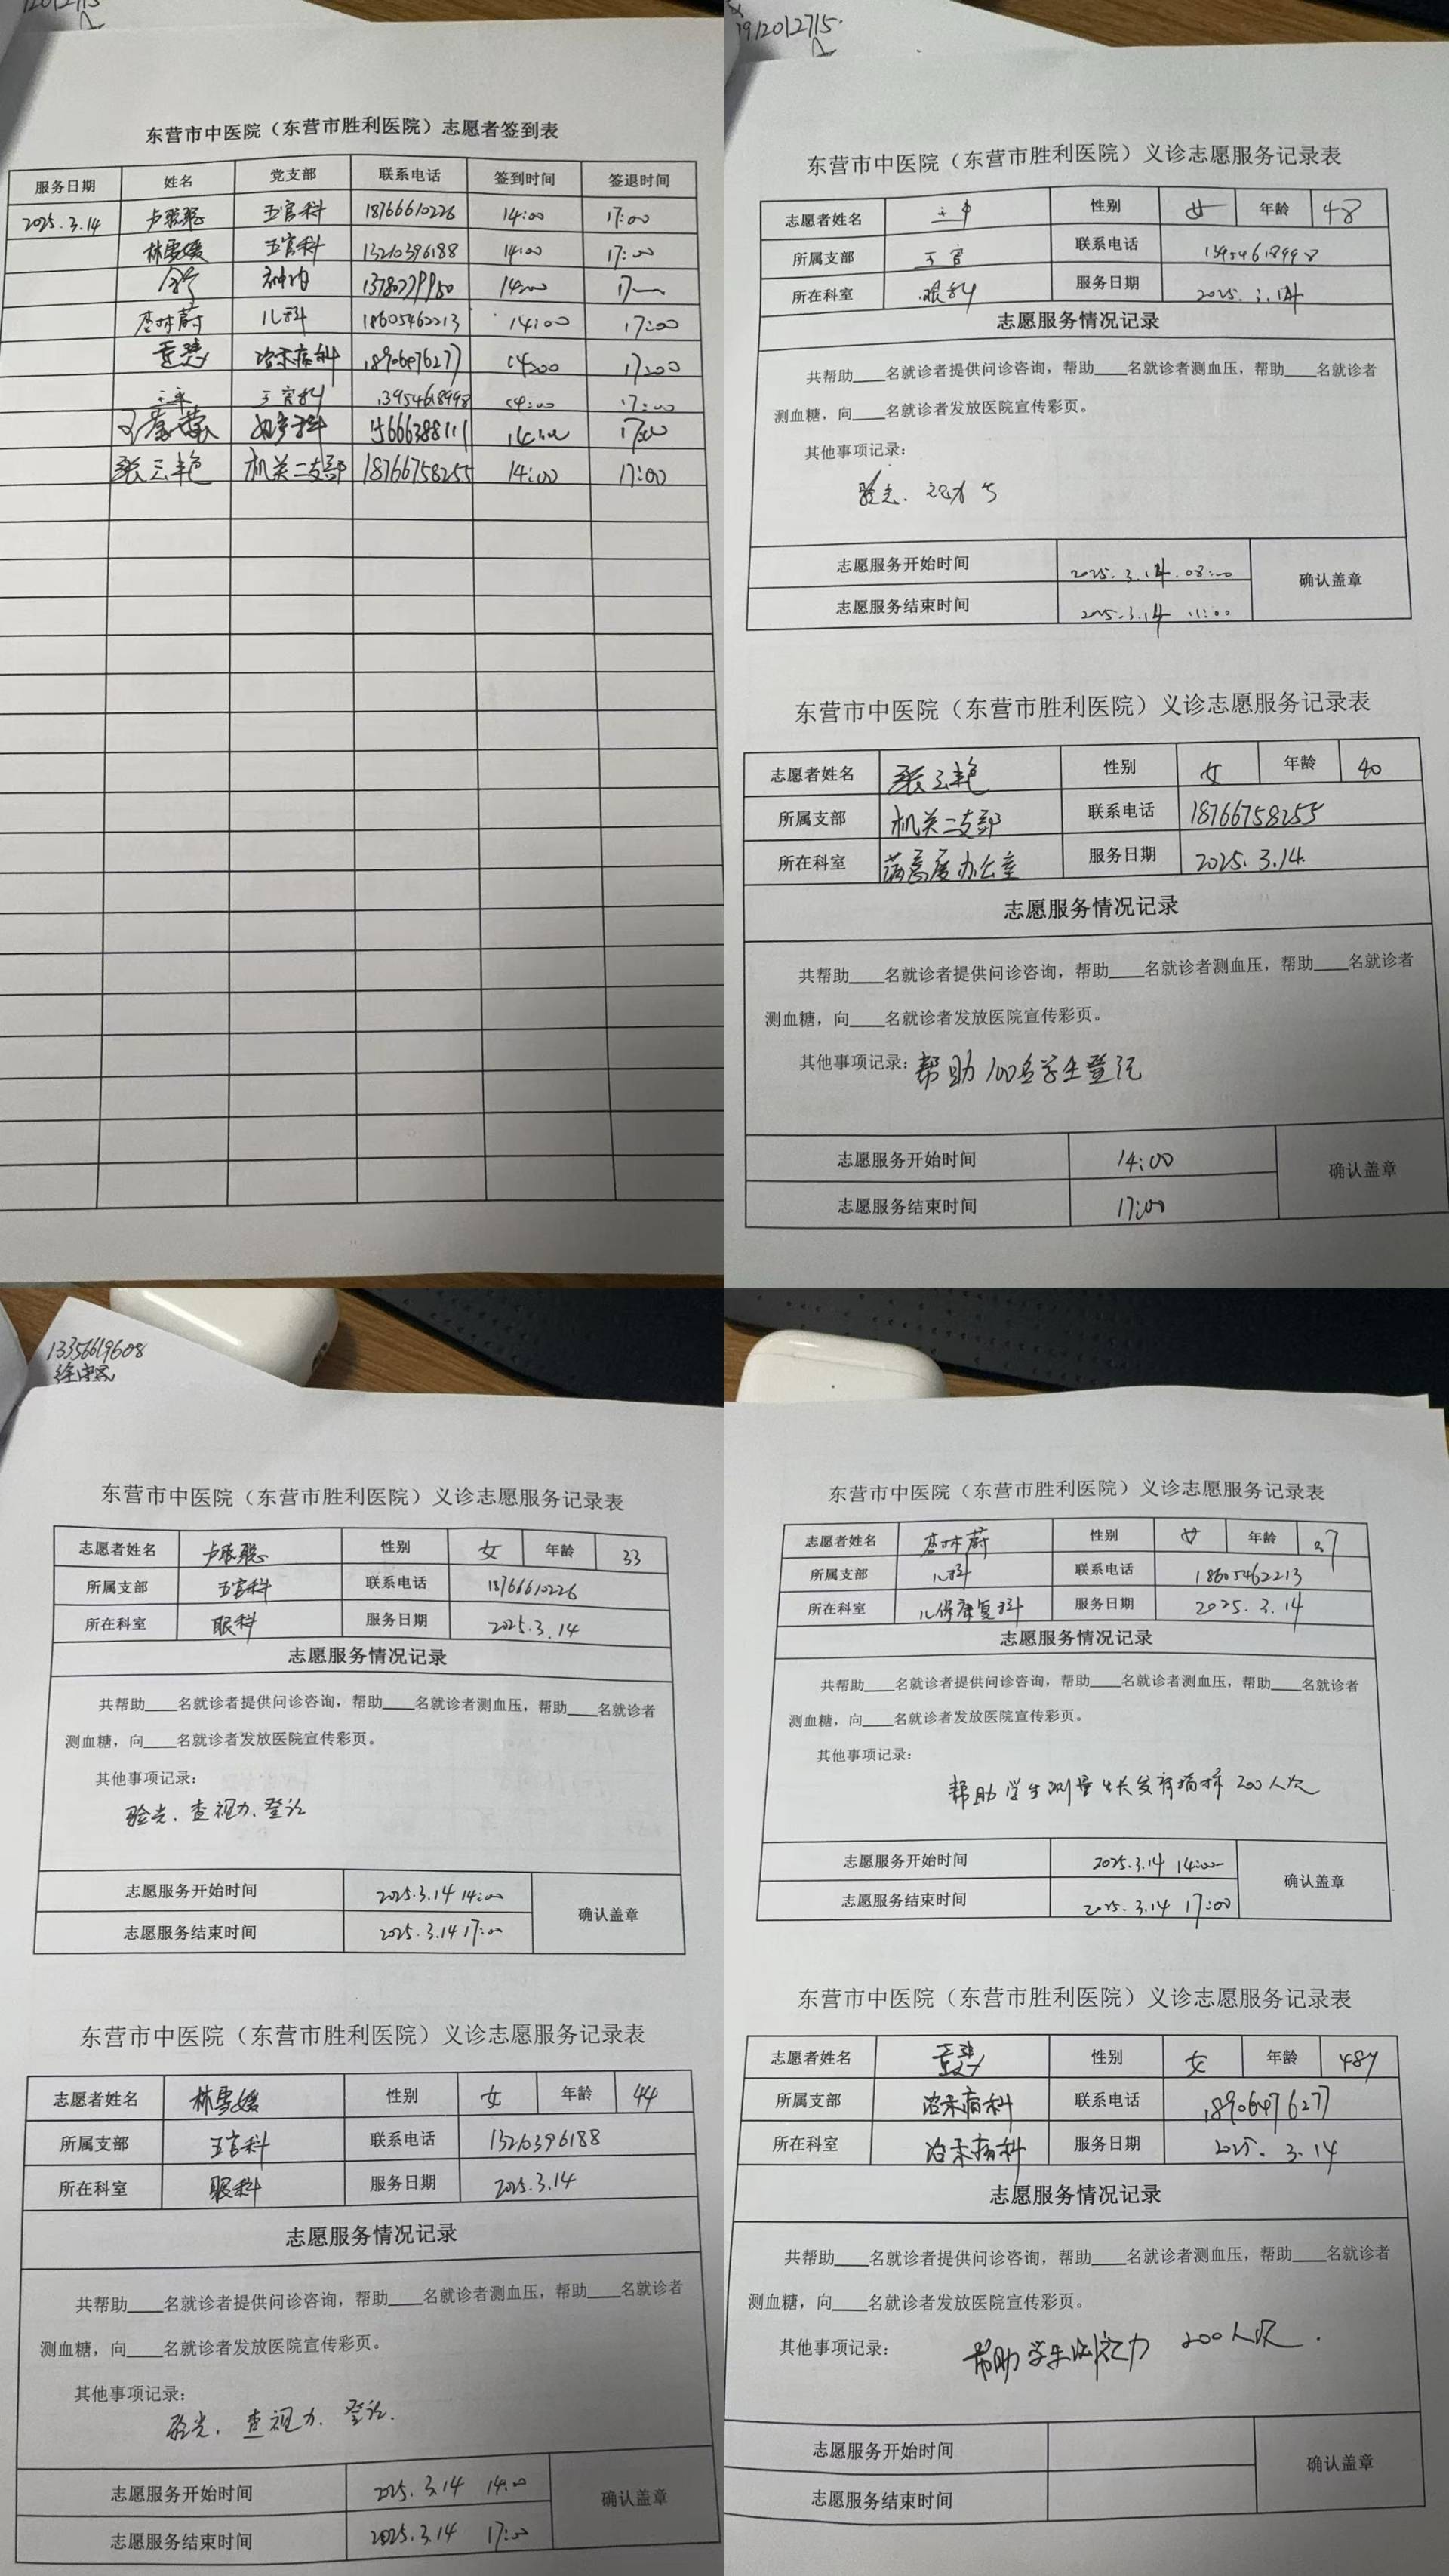 东营市中医院（东营市胜利医院）志愿者签到表
服务日期 姓名 党支部 联系电话 签到时间 签退时间
2025.3.14 五官科 18766610226 14:00 17:00
林雪媛 五官科 13210396188 14:00 17:00
神内 14:00
儿科 18605462213 14:00 17:00
治未病科 18906476277 14:00 17:00
五官科 13954618998 14:00 17:00
妇产科 15666388111 14:00 17:00
张兰艳 机关二支部 18766758255 14:00 17:00
东营市中医院（东营市胜利医院）义诊志愿服务记录表
志愿者姓名 性别 女 年龄 48
所属支部 五官 联系电话 13954618998
所在科室 眼科 服务日期 2025.3.14
志愿服务情况记录
共帮助____名就诊者提供问诊咨询，帮助____名就诊者测血压，帮助____名就诊者
测血糖，向____名就诊者发放医院宣传彩页。
其他事项记录：
验光、
志愿服务开始时间 2025.3.14 08:00 确认盖章
志愿服务结束时间 2025.3.14 11:00
东营市中医院（东营市胜利医院）义诊志愿服务记录表
志愿者姓名 张兰艳 性别 女 年龄 40
所属支部 机关二支部 联系电话 18766758255
所在科室 满意度办公室 服务日期 2025.3.14.
志愿服务情况记录
共帮助____名就诊者提供问诊咨询，帮助____名就诊者测血压，帮助____名就诊者
测血糖，向____名就诊者发放医院宣传彩页。
其他事项记录：帮助100名学生登记
志愿服务开始时间 14:00 确认盖章
志愿服务结束时间 17:00
13356619608
东营市中医院（东营市胜利医院）义诊志愿服务记录表
志愿者姓名 性别 女 年龄 33
所属支部 五官科 联系电话 18766610226
所在科室 眼科 服务日期 2025.3.14
志愿服务情况记录
共帮助____名就诊者提供问诊咨询，帮助____名就诊者测血压，帮助____名就诊者
测血糖，向____名就诊者发放医院宣传彩页。
其他事项记录：
验光、查视力、登记
志愿服务开始时间 2025.3.14 14:00 确认盖章
志愿服务结束时间 2025.3.14 17:00
东营市中医院（东营市胜利医院）义诊志愿服务记录表
志愿者姓名 林雪媛 性别 女 年龄 44
所属支部 五官科 联系电话 13210396188
所在科室 眼科 服务日期 2025.3.14
志愿服务情况记录
共帮助____名就诊者提供问诊咨询，帮助____名就诊者测血压，帮助____名就诊者
测血糖，向____名就诊者发放医院宣传彩页。
其他事项记录：
验光、查视力、登记.
志愿服务开始时间 2025.3.14 14:00 确认盖章
志愿服务结束时间 2025.3.14 17:00
东营市中医院（东营市胜利医院）义诊志愿服务记录表
志愿者姓名 性别 女 年龄 37
所属支部 儿科 联系电话 18605462213
所在科室 儿保康复科 服务日期 2025.3.14
志愿服务情况记录
共帮助____名就诊者提供问诊咨询，帮助____名就诊者测血压，帮助____名就诊者
测血糖，向____名就诊者发放医院宣传彩页。
其他事项记录：
帮助学生测量生长发育指标200人次
志愿服务开始时间 2025.3.14 14:00 确认盖章
志愿服务结束时间 2025.3.14 17:00
东营市中医院（东营市胜利医院）义诊志愿服务记录表
志愿者姓名 性别 女 年龄
所属支部 治未病科 联系电话 18906476277
所在科室 治未病科 服务日期 2025.3.14
志愿服务情况记录
共帮助____名就诊者提供问诊咨询，帮助____名就诊者测血压，帮助____名就诊者
测血糖，向____名就诊者发放医院宣传彩页。
其他事项记录： 帮助学生 200人次.
志愿服务开始时间 确认盖章
志愿服务结束时间